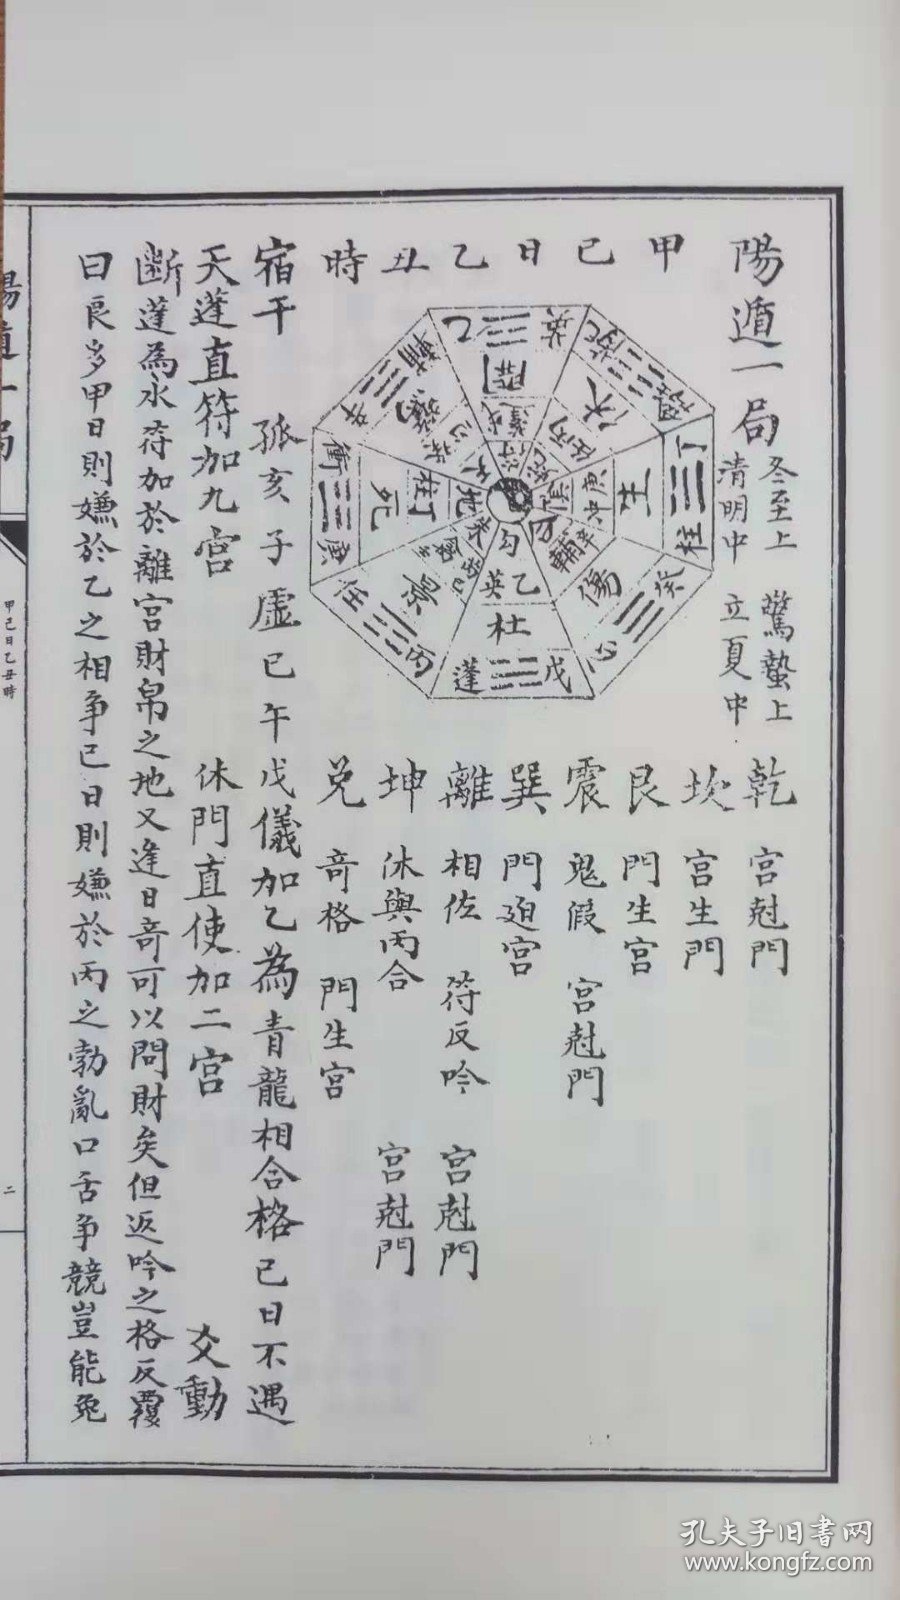 陽遁一局
冬至上　驚蟄上
清明中　立夏中
甲己日乙丑時
乾　宮尅門
坎　宮生門
艮　門生宮
震　鬼假　宮尅門
巽　門迫宮
離　相佐　符反吟　宮尅門
坤　休與丙合　宮尅門
兌　奇格　門生宮
宿干　孤亥子虛巳午戊儀加乙為青龍相合格己日不遇
天蓬直符加九宮　休門直使加二宮　交動
斷蓬為水符加於離宮財帛之地又逢日奇可以問財矣但返吟之格反覆
日良多甲日則嫌於乙之相爭己日則嫌於丙之勃亂口舌爭競豈能免
開
休
生
傷
杜
景
死
丁
柱
心
戊
蓬
丙
任
庚
衝
乙
英
勾
乙
英
輔
陽遁一局
甲己日乙丑時
二
孔夫子旧書网
www.kongfz.com